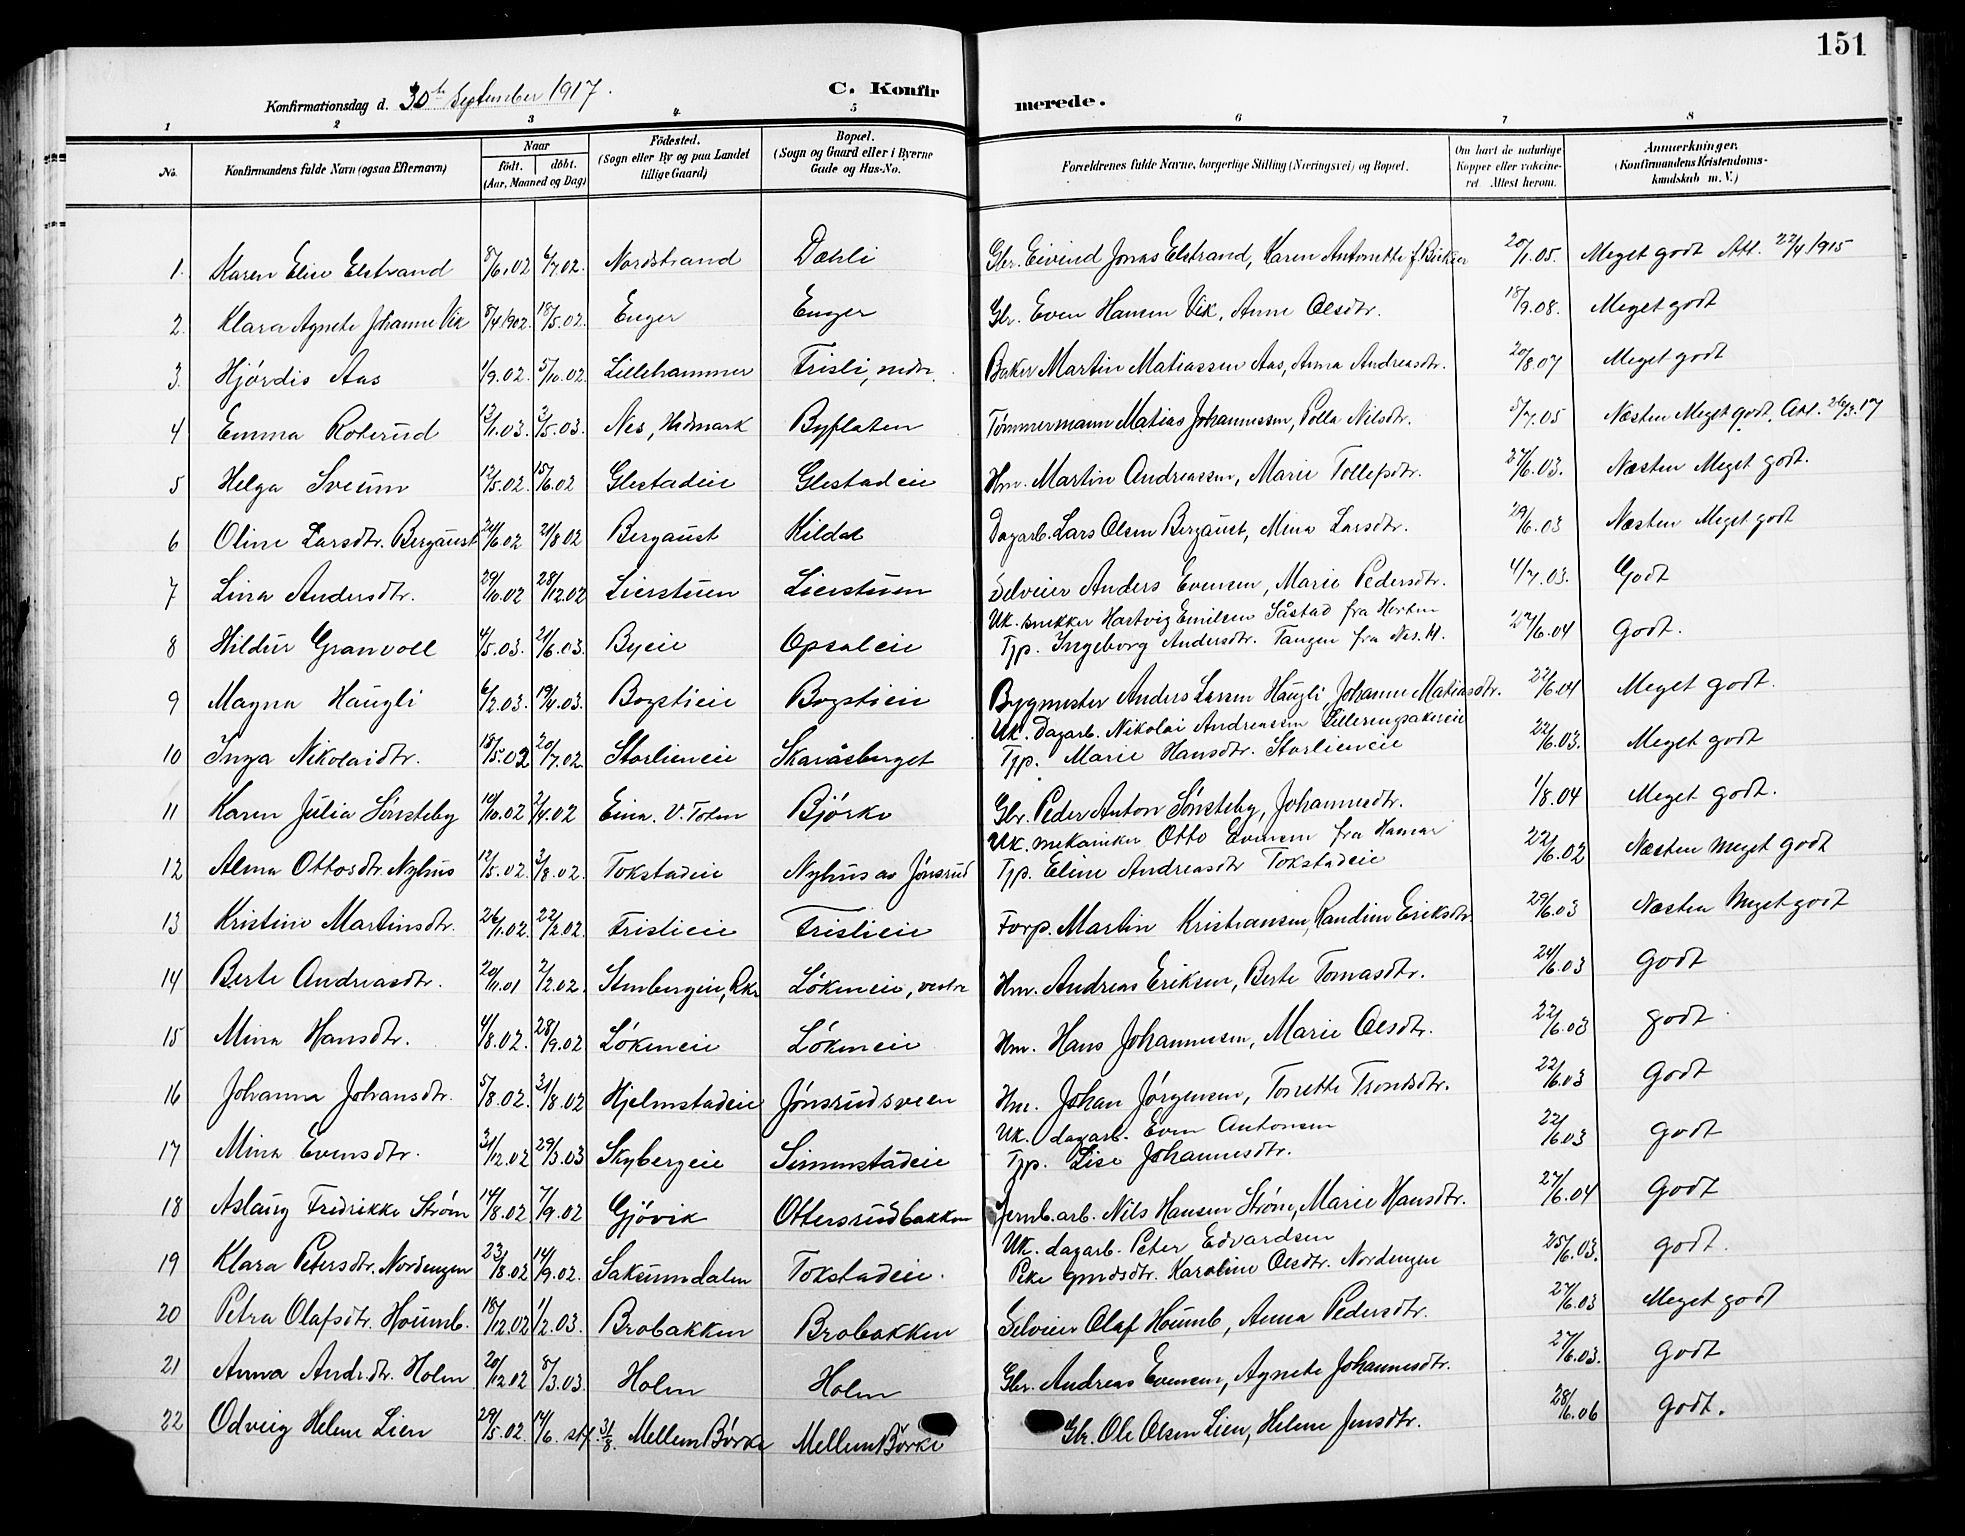 151
Konfirmationsdag d. 30te September 1917.
C. Konfirmerede.
1 2 3 4 5 6 7 8
No. Konfirmandens fulde Navn (ogsaa Efternavn) Naar født. døbt. (Aar, Maaned og Dag) Fødested. (Sogn eller By og paa Landet tillige Gaard) Bopæl. (Sogn og Gaard eller i Byerne Gade og Hus-No. Forældrenes fulde Navne, borgerlige Stilling (Næringsvei) og Bopæl. Om havt de naturlige Kopper eller vakcineret. Attest herom. Anmerkninger. (Konfirmandens Kristendomskundskab m. V.)
1. Karen Elise Elstrand 8/6.02 6/7.02. Nordstrand Dæhli Gbr. Eivind Jonas Elstrand, Karen Antonette f. 20/1.05. Meget godt Att. 22/4 1915
2. Klara Agnete Johanne Vik 8/4 1902. 18/5.02. Enger Enger Gbr. Even Hansen Vik, Anne Olsdtr. 18/9.08. Meget godt
3. Hjørdis Aas 1/9.02. 5/10.02. Lillehammer Frisli, nedr. Baker Martin Matiassen Aas, Anna Andreasdtr. 20/8.07 Meget godt
4 Emma Roterud 13/1.03. 3/5.03. Nes, Hedmark Byflaten Tømmermann Matias Johannessen, Polla Nilsdtr. 5/7.05 Næsten Meget godt. Att. 26/3.17
5 Helga Sveum 12/5.02. 15/6.02 Glestadeie Glestadeie Hm. Martin Andreassen, Marie Tollefsdtr. 27/6.03. Næsten Meget godt.
6 Oline Larsdtr. Bergaust 24/6.02 21/8 02 Bergaust Kildal Dagarb. Lars Olsen Bergaust, Mina Larsdtr. 29/6.03 Næsten Meget godt
7 Lina Andersdtr. 29/10.02 28/12.02 Lierstuen Lierstuen Selveier Anders Evensen, Marie Pedersdtr. 4/7.03. Godt
8 Hildur Granvoll 4/5.03. 21/6.03. Byeie Opsaleie Uk. snekker Hartvig Emilsen Såstad fra Horten
Tjp. Ingeborg Andersdtr. Tangen fra Nes. H. 27/6.04 Godt.
9 Magna Haugli 6/2.03. 19/4.03. Bogstieie Bogstieie Bygmester Anders Larsen Haugli, Johanne Matiasdtr. 22/6.04 Meget godt.
10 Inga Nikolaidtr. 18/5.02 20/7.02. Storlieneie Skaråsberget Uk. Dagarb. Nikolai Andreassen Lilleringsakereie
Tjp. Marie Hansdtr. Storlieneie 22/6.03. Meget godt
11 Karen Julia Sønsteby 10/10.02 2/4.02 Eina. V. Toten Bjørke Gbr. Peder Anton Sønsteby, Johannesdtr. 1/8.04 Meget godt.
12 Alma Ottosdtr. Nyhus 12/5.02. 3/8.02. Tokstadeie Nyhus av Jønsrud Uk. mekaniker Otto Evensen fra Hamar
Tjp. Eline Andreasdtr Tokstadeie 22/6.02 Næsten meget godt
13 Kristine Martinsdtr. 26/1.02. 22/2.02. Frislieie Frislieie Forp. Martin Kristiansen, Randine Eriksdtr. 29/6.03 Næsten Meget godt
14 Berte Andreasdtr. 20/11.01 2/2.02. Stenbergeie, Rkr Løkeneie, vestre Hm. Andreas Eriksen, Berte Tomasdtr. 24/6.03 Godt
15 Mina Hansdtr. 4/8.02. 28/9.02 Løkeneie Løkeneie Hm. Hans Johannesen, Marie Olsdtr. 22/6.03 godt.
16 Johanna Johansdtr. 5/8.02. 31/8.02 Hjelmstadeie Jønsrudsveen Hm. Johan Jørgensen, Torette Trondsdtr. 22/6.03 Godt
17 Mina Evensdtr. 31/12.02 29/3.03 Skybergeie Simenstadeie Uk. dagarb. Even Antonsen
Tjp. Lise Johannesdtr. 22/6.03 godt
18 Aslaug Fredrikke Strøm 14/8.02 7/9.02 Gjøvik Ottersrudbakken Jernb.arb. Nils Hansen Strøm, Marie Hansdtr. 27/6.04 Godt
19 Klara Petersdtr. Nordengen 23/8.02 14/9.02. Saksumdalen Tokstadeie. Uk. dagarb. Peter Edvardsen
Pike gmdsdtr. Karoline Olsdtr. Nordengen 25/6.03. godt.
20 Petra Olafsdtr. Houmb. 18/12.02 1/2.03. Brobakken Brobakken Selveier Olaf Houmb, Anna Pedersdtr. 27/6.03 Meget godt
21 Anna Andr.dtr. Holm 20/12.02 8/3.03. Holm Holm Gbr. Andreas Evensen, Agnete Johannesdtr. 27/6.03. Godt
22 Odveig Helene Lien 29/5.02. 14/6. stf. 31/8. Mellem Børke Mellem Børke Gbr. Ole Olsen Lien, Helene Jensdtr. 28/6.06 Godt.